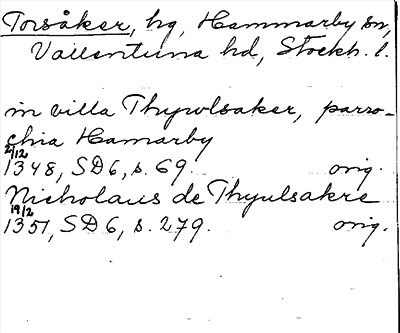 Torsåker, hg, Hammarby sn,
Vallentuna hd, Stockh. l.
in villa Thyrvlsaker, parro-
chia Hamarby
2/12
1348, SD6, s. 69. orig.
Nicholaus de Thyulsakre
19/2
1351, SD6, s. 279. orig.